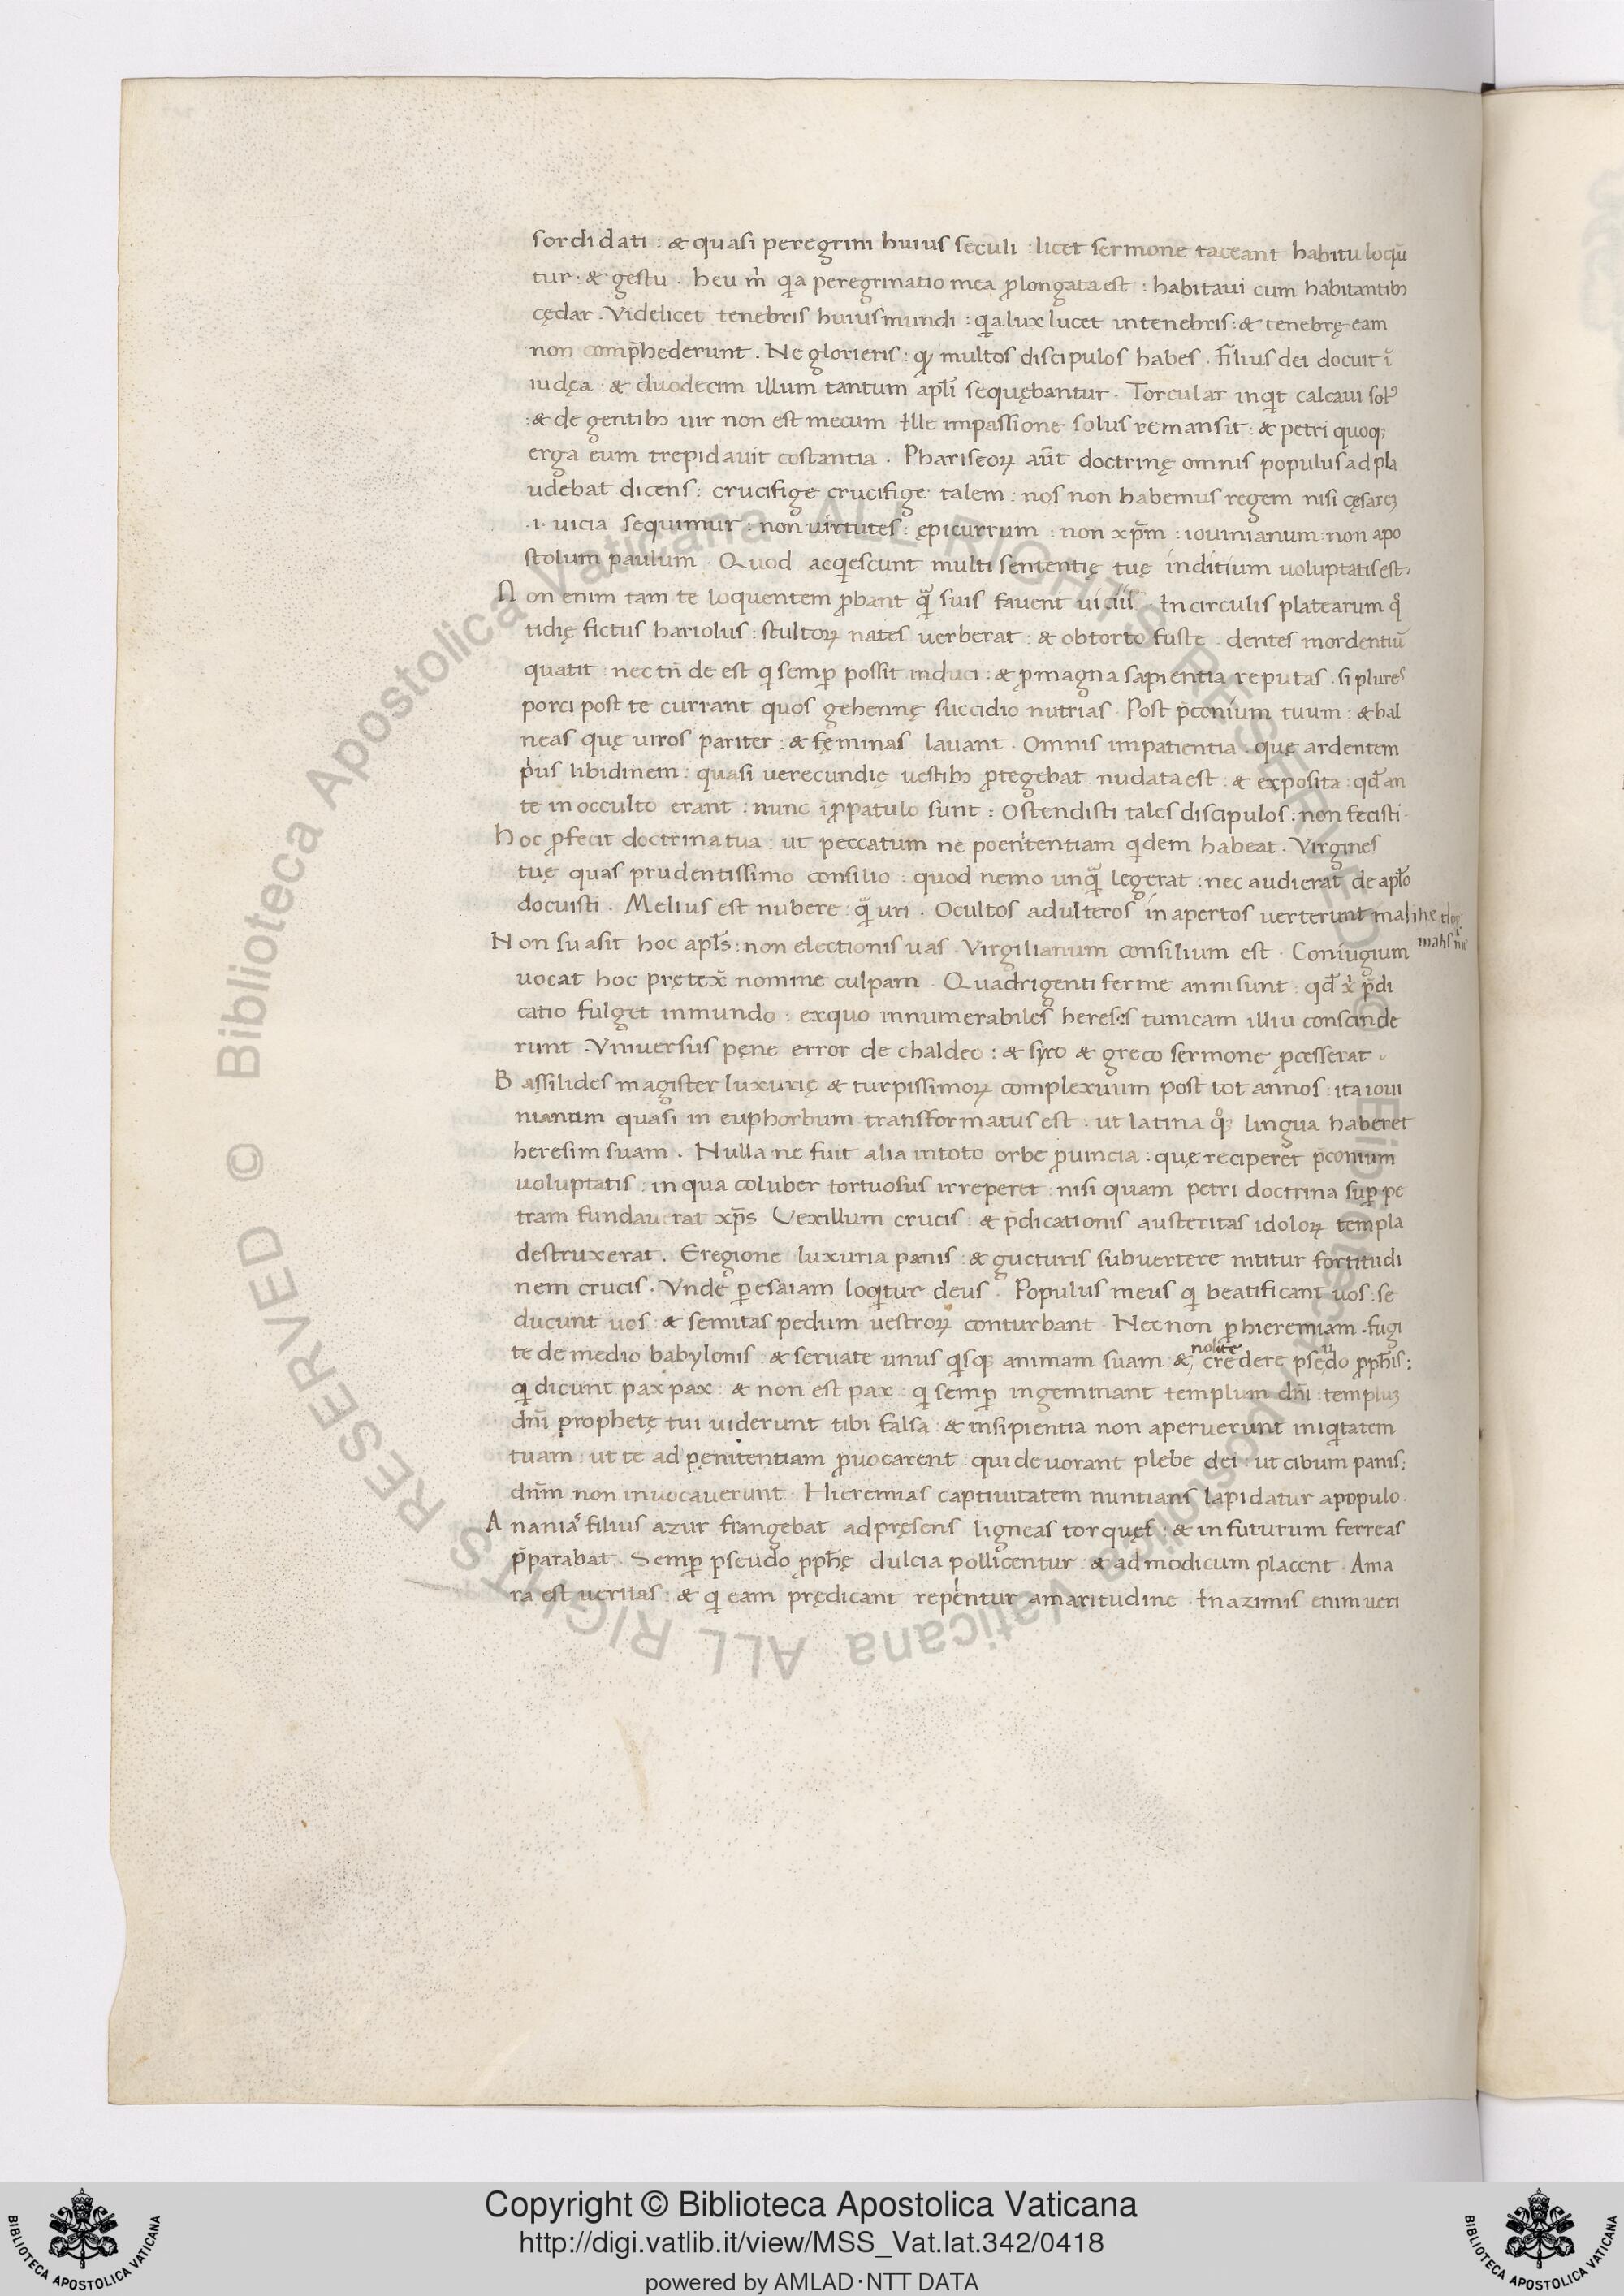 sordidati : & quasi peregrini huius seculi : licet sermone taceant habitu loqũ
tur · & gestu . heu m̉ qa peregrinatio mea plongata est : habitaui cum habitantib;
cędar . Videlicet tenebris huius mundi : qa lux lucet in tenebris : & tenebrę eam
non comp̃hederunt . Ne glorieris : q multos discipulos habes . filius dei docuit ĩ
iudęa : & duodecim illum tantum apl̃i sequębantur . Torcular inqt calcaui sol᾽
: & de gentib; uir non est mecum Ille impassione solus remansit : & petri quoq;
erga eum trepidauit costantia . Phariseoꝝ aũt doctrinę omnis populus ad pla
udebat dicens : crucifige crucifige talem : nos non habemus regem nisi cęsareꝫ
· i · uicia sequimur : non virtutes : ępicurrum : non xp̃m : iouinianum : non apo
stolum paulum . Quod acqescunt multi sententię tuę inditium uoluptatis est .
Non enim tam te loquentem pbant q̃ suis fauent uiciis In circulis platearum q
tidię fictus hariolus : stultoꝝ nates uerberat : & obtorto fuste : dentes mordentiũ
quatit : nec tñ de est q semp possit induci : & p magna sapientia reputas : si plures
porci post te currant quos gehennę succidio nutrias . Post p̃conium tuum : & bal
neas quę uiros pariter : & fęminas lauant . Omnis impatientia . quę ardentem
pus libidinem : quasi uerecundię uestib; ptegebat nudata est : & exposita : qd̃ an
te in occulto erant : nunc ĩ ppatulo sunt : Ostendisti tales discipulos : non fecisti .
hoc pfecit doctrina tua : ut peccatum ne poenitentiam qdem habeat . Virgines
tuę quas prudentissimo consilio : quod nemo unq̃ legerat : nec audierat de apl̃o
docuisti . Melius est nubere : q̃ uri . Ocultos adulteros in apertos uerterunt
Non suasit hoc apl̃s : non electionis uas . Virgilianum consilium est . Coniugium
uocat hoc prętex̃ nomine culpam . Quadrigenti ferme anni sunt : qd̃ x p̃di
catio fulget in mundo : ex quo innumerabiles hereses tunicam illiu conscinde
runt . Vniuersus pęne error de chaldeo : & syro & greco sermone pcesserat .
Bassilides magister luxurię & turpissimoꝝ complexuum post tot annos : ita ioui
nianum quasi in euphorbum transformatus est . ut latina qͦ; lingua haberet
heresim suam . Nulla ne fuit alia in toto orbe puincia : quę reciperet p̃conium
uoluptatis : in qua coluber tortuosus irreperet : nisi quam petri doctrina sup pe
tram fundauerat xp̃s Vexillum crucis : & p̃dicationis austeritas idoloꝝ templa
destruxerat . Eregione luxuria panis : & gucturis subuertere nititur fortitudi
nem crucis . Vnde p esaiam loqtur deus . Populus meus q beatificant uos : se
ducunt uos : & semitas pedum uestroꝝ conturbant . Nec non p hieremiam . fugi
te de medio babylonis : & seruate unus qsq; animam suam : & nolite credere psęudo pph̃is :
q dicunt pax pax : & non est pax : q semp ingeminant templum dñi : templuꝫ
dñi prophetę tui uiderunt tibi falsa : & insipientia non aperuerunt iniqtatem
tuam : ut te ad pęnitentiam puocarent : qui deuorant plebe dei : ut cibum panis :
dñm non inuocauerunt . Hieremias captiuitatem nuntians lapidatur a populo .
Ananias filius azur frangebat ad pręsens ligneas torquęs : & in futurum ferreas
p̃parabat . Semp pseudo pph̃ę dulcia pollicentur : & ad modicum placent . Ama
ra est ueritas : & q eam prędicant repentur amaritudine . In azimis enim ueri
Copyright © Biblioteca Apostolica Vaticana
http://digi.vatlib.it/view/MSS_Vat.lat.342/0418
powered by AMLAD·NTT DATA
BIBLIOTECA APOSTOLICA VATICANA
BIBLIOTECA APOSTOLICA VATICANA
© Biblioteca Apostolica Vaticana ALL RIGHTS RESERVED